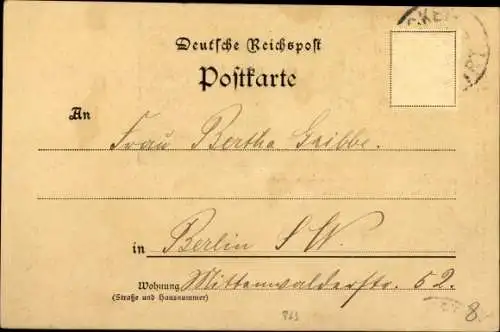 Deutsche Reichspost
Postkarte
An
Frau Bertha Gribbe.
in Berlin S W.
Wohnung Mittenwalderstr. 52.
(Straße und Hausnummer)
8.